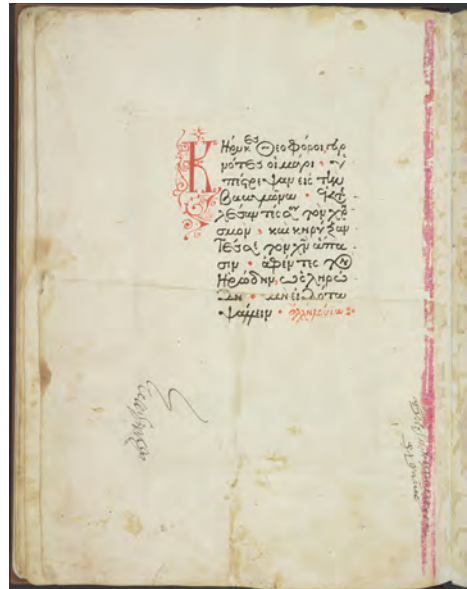 Κήρυκες Θεοφόροι, γεγο
νότες οἱ μάγοι · ὑ
πέστρεψαν εἰς τὴν
βαβυλῶνα · ἐκτε
λέσαντές σου τὸν χρη
σμόν · καὶ κηρύξαν
τές σε τὸν χν ἅπα
σιν · ἀφέντες τὸν
Ἡρώδην, ὡς ληρώ
δη · μὴ εἰδότα
ψάλλειν · ἀλληλούια